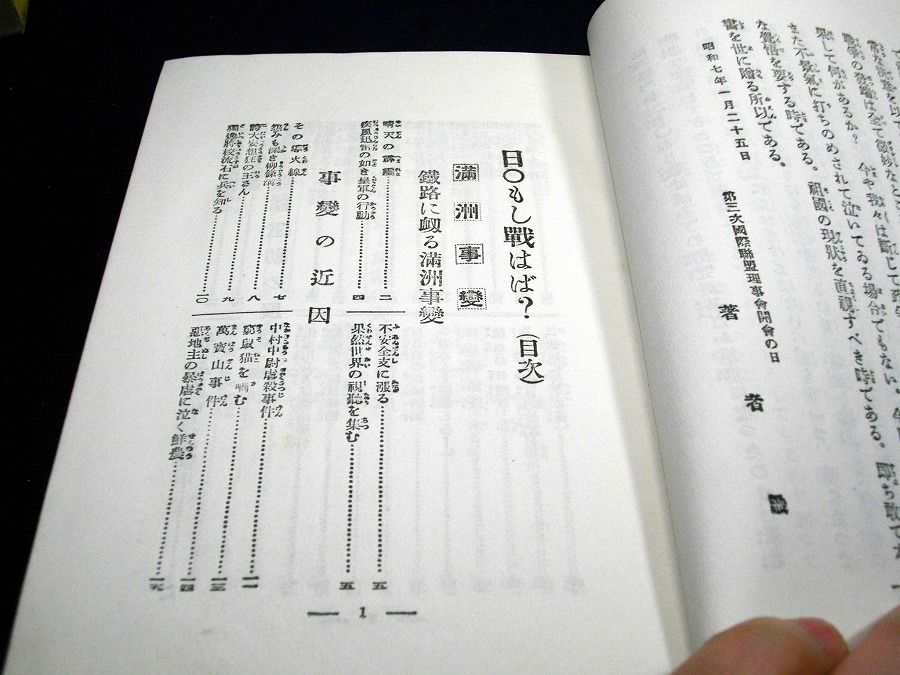 また不景氣に打ちのめされて泣いてゐる場合でもない。
果して何があるか？　今や我々は斷じて
祖國の現狀を直視すべき時である。即ち敢てか
な覺悟を要する時である。
書を世に贈る所以である。
昭和七年一月二十五日
第三次國際聯盟理事會開會の日
著者識
日〇もし戰はば？（目次）
滿洲事變
鐵路に衂る滿洲事變
晴天の霹靂…………二
疾風迅雷の如き皇軍の行動…………四
不安全支に漲る…………五
果然世界の視聽を集む…………五
事變の近因
その導火線…………七
怨みも深き柳條溝…………八
誇大妄想狂の王さん…………九
獨逸將校流石に兵を知る…………一〇
中村中尉虐殺事件…………一一
窮鼠猫を嚙む…………一二
萬寶山事件…………一四
惡地主の暴虐に泣く鮮農…………一六
― 1 ―